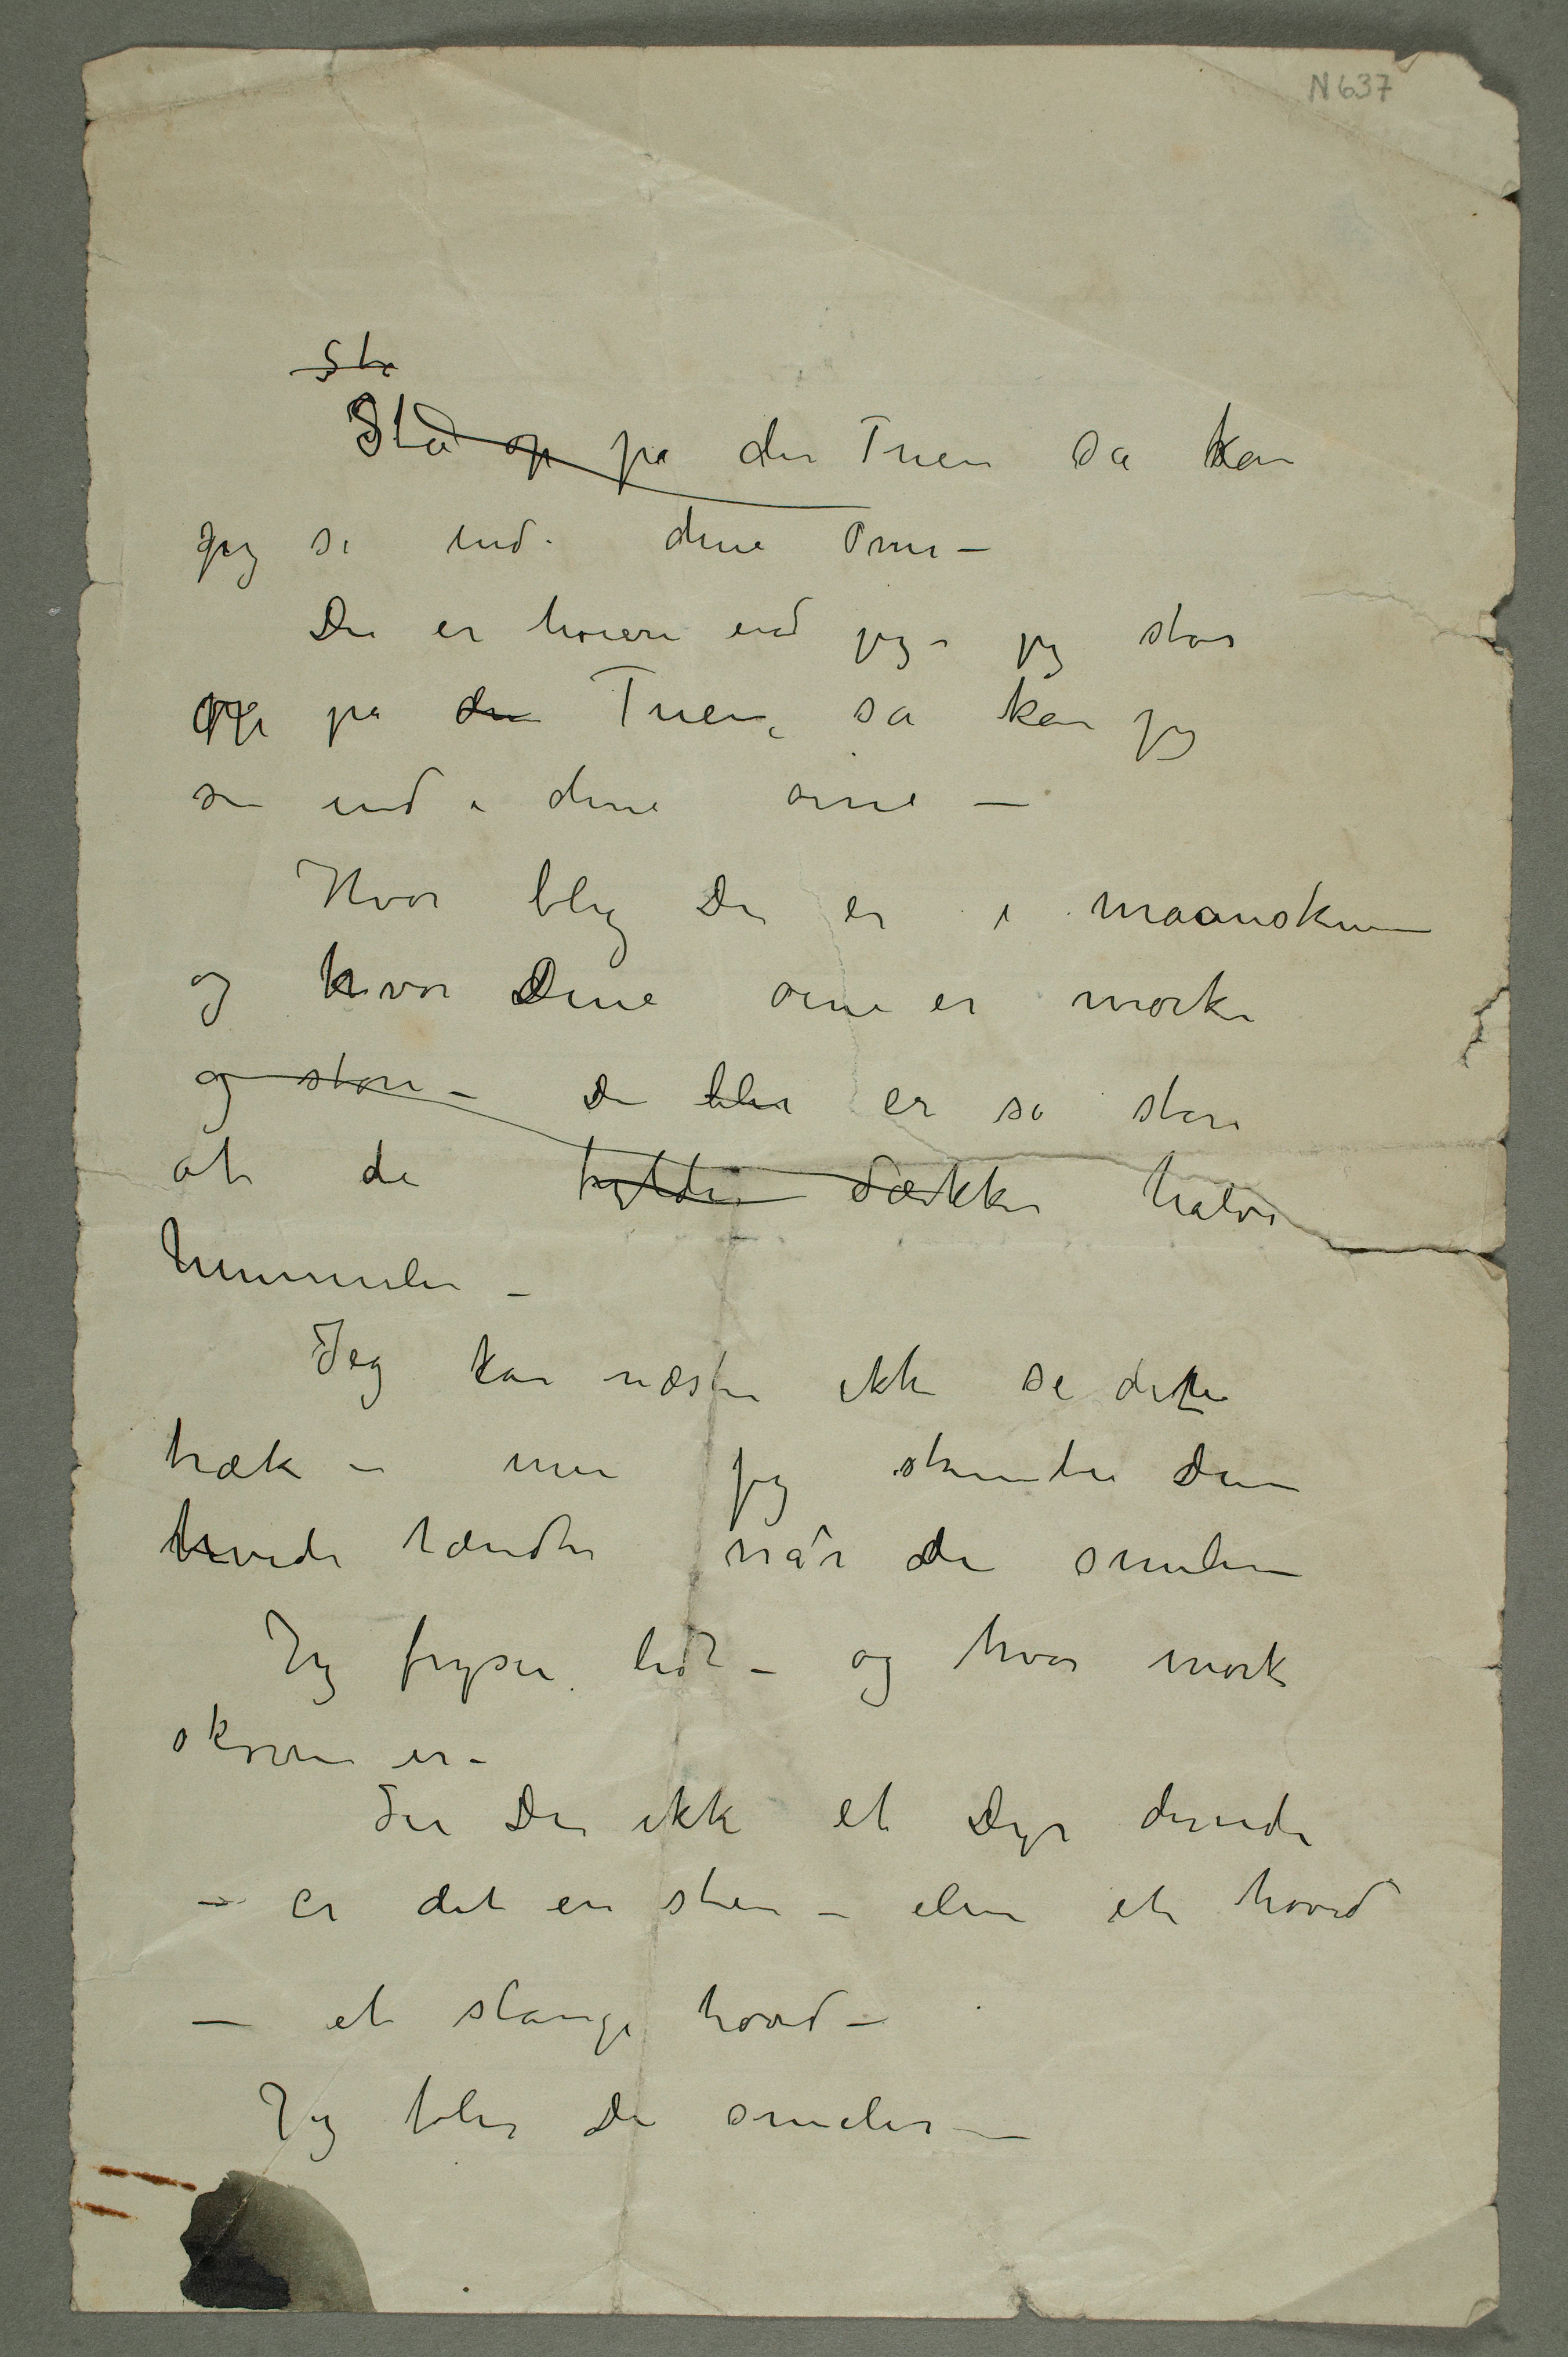 N 637
Sta
Stå op på den Tuen så kan
jeg se ind i dine Øine –
Du er høiere end jeg – jeg står
op på den Tuen, så kan jeg
se ind i dine øine –
Hvor bleg Du er i maanskinnet
og hvor Dine øine er mørke
og store – De blir er så store
at de fylder dækker halve
himmelen –
Jeg kan næsten ikke se dine
træk – men jeg skimter Dine
hvide tænder når du smiler
Jeg fryser lidt – og hvor mørk
skoven er –
Ser Du ikke et Dyr derinde
– er det en sten – eller et hoved
– et slange hoved –
Jeg føler Du smiler –